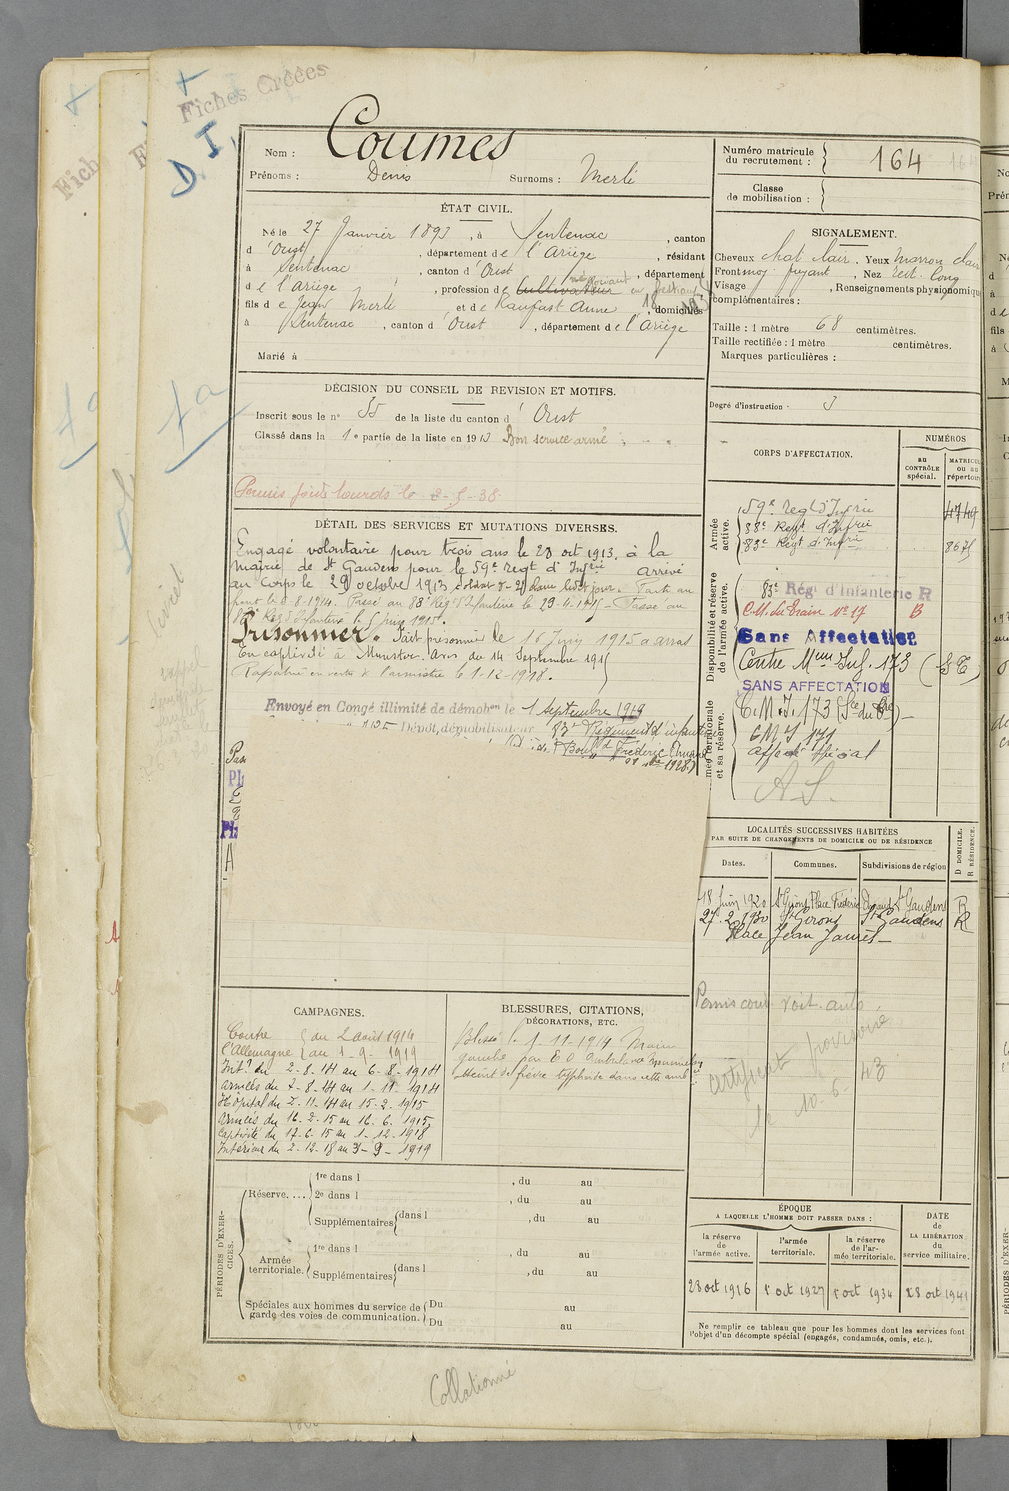 Fiches Créées
D I
Nom : Coumes
Prénoms : Denis Surnoms : Merli
Numéro matricule
du recrutement : 164
Classe
de mobilisation :
ÉTAT CIVIL.
Né le 27 Janvier 1893, à Sentenac, canton
d'Oust, département de l'Ariège, résidant
à Sentenac, canton d'Oust, département
de l'Ariège, profession de Cultivateur négociant en bestiaux
fils de Jean Merli et de Raufast Anne, domiciliés
à Sentenac, canton d'Oust, département de l'Ariège
Marié à
SIGNALEMENT.
Cheveux chat clair. Yeux marron clair
Front moy fuyant, Nez rect. long
Visage , Renseignements physionomiques
complémentaires :
Taille : 1 mètre 68 centimètres.
Taille rectifiée : 1 mètre centimètres.
Marques particulières :
Degré d'instruction. 3
DÉCISION DU CONSEIL DE REVISION ET MOTIFS.
Inscrit sous le n° 55 de la liste du canton d'Oust
Classé dans la 1e partie de la liste en 1913 Bon service armé
Permis poids lourds le 2-5-38
DÉTAIL DES SERVICES ET MUTATIONS DIVERSES.
Engagé volontaire pour trois ans le 28 oct 1913, à la
mairie de St Gaudens pour le 59e regt d'Infrie arrivé
au corps le 29 octobre 1913, soldat de 2e classe ledit jour. Parti au
front le 8-8-1914. Passé au 88e Rég d'Infanterie le 29-4-1915 - Passé au
83e Rég d'Infanterie le 5 juin 1915.
Prisonnier. Fait prisonnier le 16 Juin 1915 à Arras
En captivité à Munster. Avis du 14 Septembre 1915
Rapatrié en vertu de l'armistice le 1-12-1918.
Envoyé en Congé illimité de démobon le 1 septembre 1919
Dépôt démobilisateur 83e Régiment d'infanterie
Pas
PL
PL
A
CORPS D'AFFECTATION.
NUMÉROS
au
CONTRÔLE
spécial.
MATRICULE
ou au
répertoire
Armée
active.
59e regt d'Infrie 4749
88e Regt d'Infrie
83e Regt d'Infrie 8675
Disponibilité et réserve
de l'armée active.
83e Régt d'Infanterie R
C.M. du Train No 17 B
Sans Affectation
Centre Mon Inf. 173 (S.T)
SANS AFFECTATION
Armée territoriale
et sa réserve.
C.M.I. 173
C M I 171
affecté spécial
A S.
LOCALITÉS SUCCESSIVES HABITÉES
PAR SUITE DE CHANGEMENTS DE DOMICILE OU DE RÉSIDENCE
Dates. Communes. Subdivisions de région
D DOMICILE.
R RÉSIDENCE.
18 Juin 1920 St Girons Place Frédéric Arnaud St Gaudens R
27.2.1930 St Girons St Gaudens R
Place Jean Jaurès
Permis cond. voit. auto.
certificat provisoire
10. 6 43
CAMPAGNES.
Contre du 2 août 1914
l'Allemagne au 1-9-1919
Intr du 2-8-14 au 6-8-1914
Armées du 7-8-14 au 1-11-1914
Hôpital du 2-11-14 au 15-2-1915
Armées du 16-2-15 au 16-6-1915
Captivité du 17-6-15 au 1-12-1918
Intérieur du 2-12-18 au 3-9-1919
BLESSURES, CITATIONS,
DÉCORATIONS, ETC.
Blessé le 1-11-1914 Main
gauche par E O
Atteint de fièvre typhoïde dans cette
PÉRIODES D'EXERCICES.
Réserve.... 1re dans l , du au
2e dans l , du au
Supplémentaires dans l , du au
Armée
territoriale. 1re dans l , du au
Supplémentaires dans l , du au
Spéciales aux hommes du service de
garde des voies de communication. Du au
Du au
ÉPOQUE
A LAQUELLE L'HOMME DOIT PASSER DANS :
DATE
de
LA LIBÉRATION
du
service militaire.
la réserve
de
l'armée active.
l'armée
territoriale.
la réserve
de l'ar-
mée territoriale.
28 oct 1916 1 oct 1927 1 oct 1934 28 oct 1941
Ne remplir ce tableau que pour les hommes dont les services font
l'objet d'un décompte spécial (engagés, condamnés, omis, etc.).
Collationné